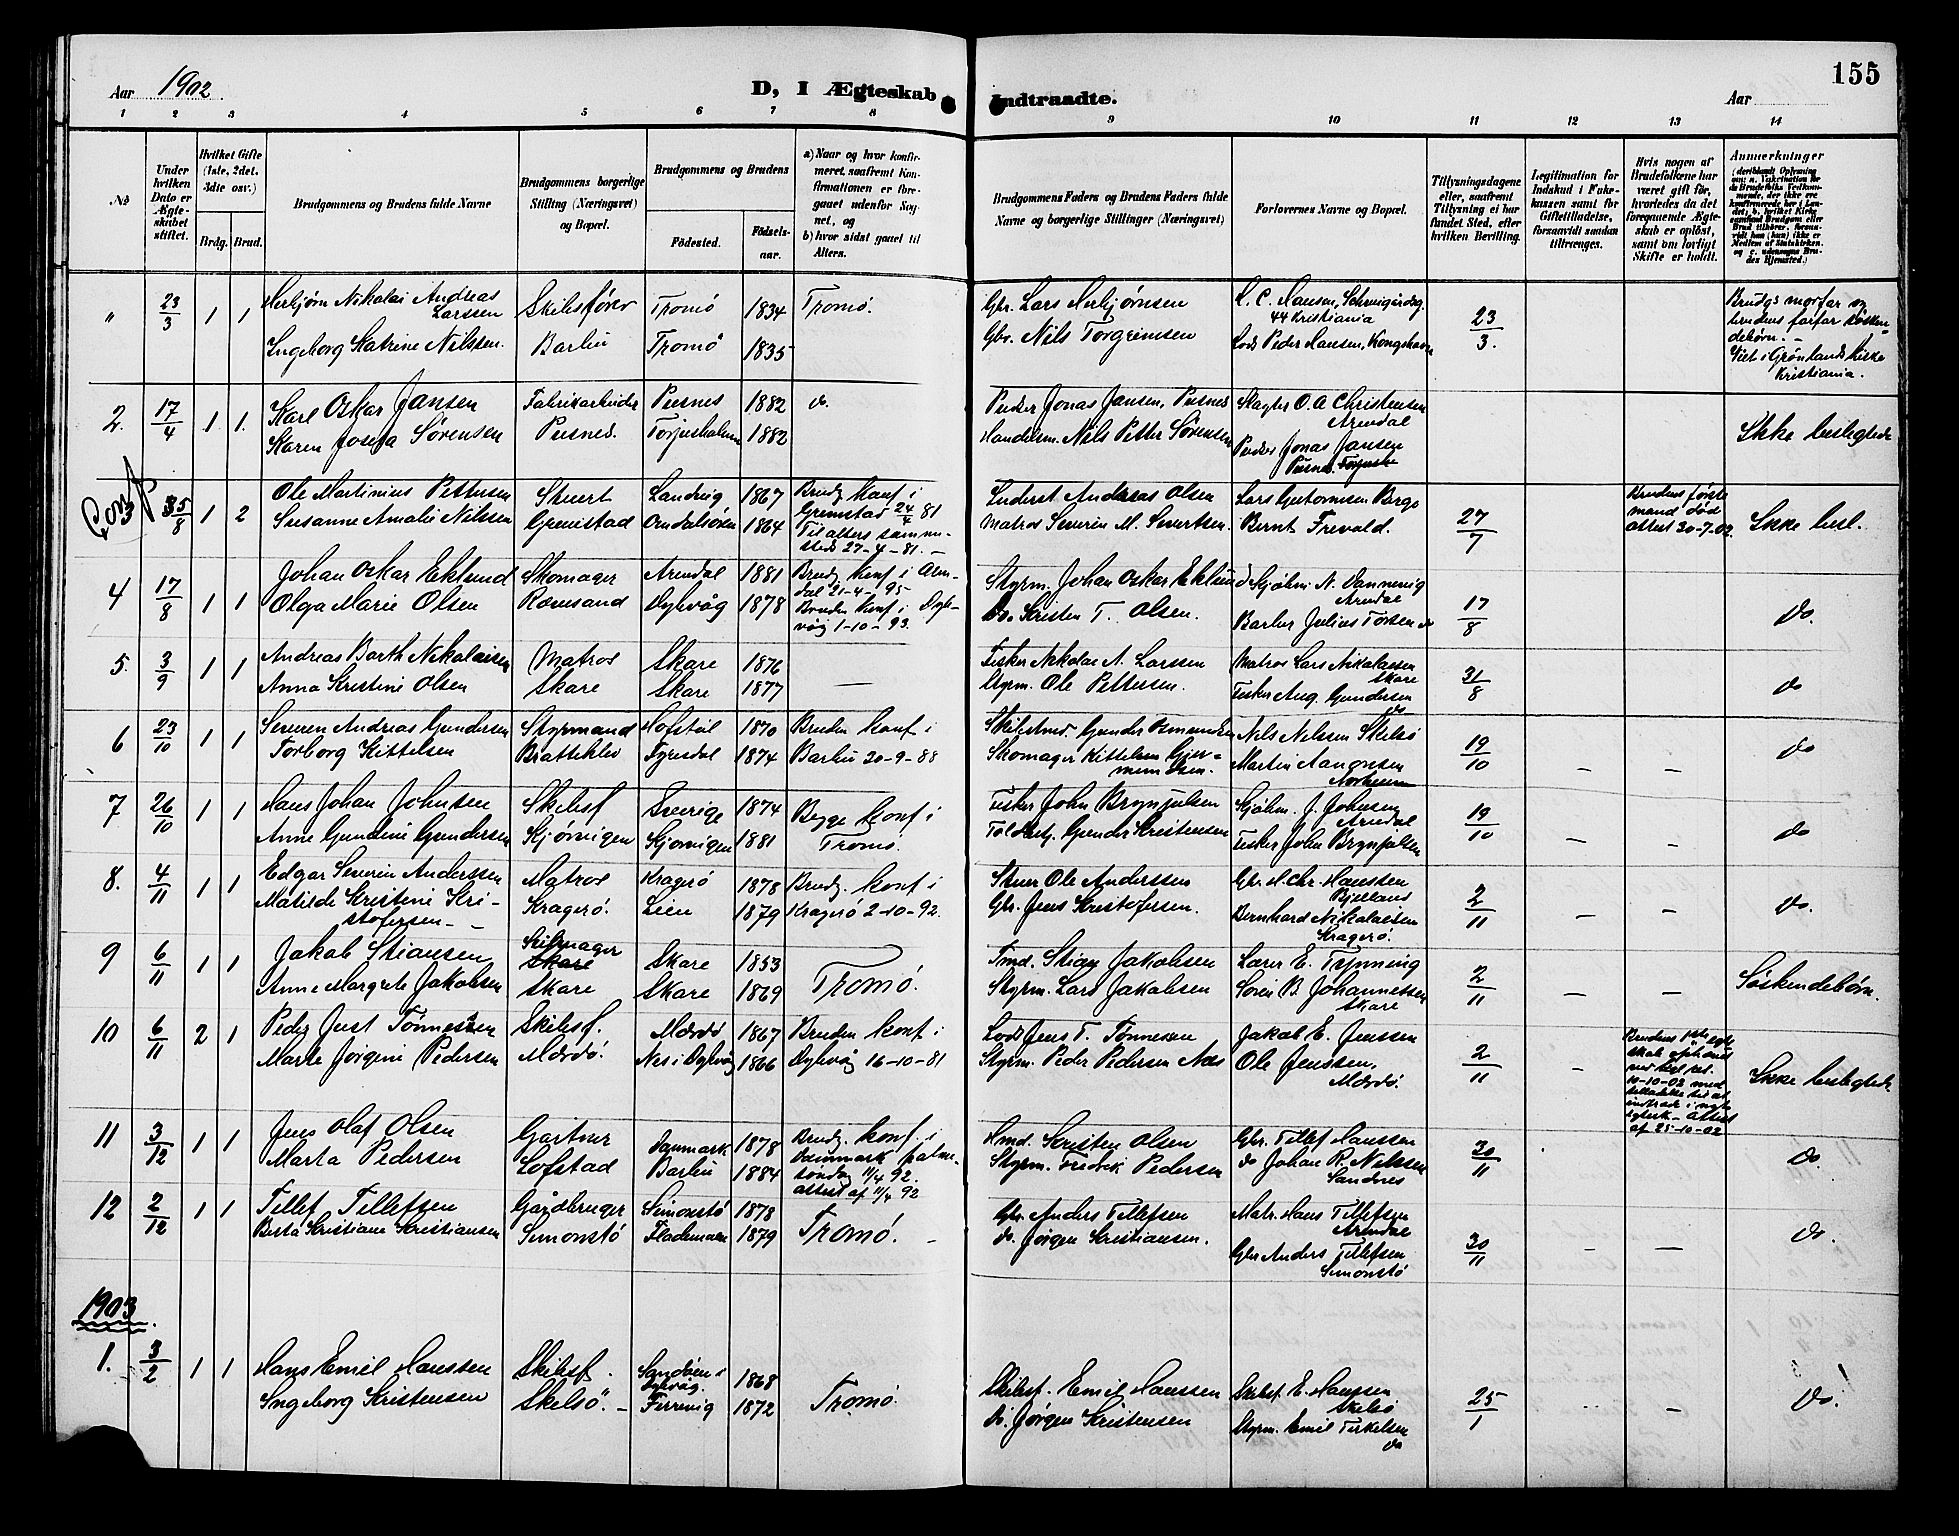 155
Aar 1902
D, I Ægteskab
Indtraadte.
Aar
1 2 3 4 5 6 7 8 9 10 11 12 13 14
No
Under hvilken Dato er Ægteskabet stiftet.
Hvilket Gifte (1ste, 2det, 3die osv.)
Brdg. Brud.
Brudgommens og Brudens fulde Navne
Brudgommens borgerlige Stilling (Næringsvei) og Bopæl.
Brudgommens og Brudens
Fødested.
Fødsels-aar.
a) Naar og hvor konfirmeret, saafremt Konfirmationen er foregaaet udenfor Sognet, og
b) hvor sidst gaaet til Alters.
Brudgommens Faders og Brudens Faders fulde Navne og borgerlige Stillinger (Næringsvei)
Forlovernes Navne og Bopæl.
Tillysningsdagene eller, saafremt Tillysning ei har fundet Sted, efter hvilken Bevilling.
Legitimation for Indskud i Enkekassen samt for Giftetilladelse, forsaavidt saadan tiltrænges.
Hvis nogen af Brudefolkene har været gift før, hvorledes da det foregaaende Ægteskab er opløst, samt om lovligt Skifte er holdt.
Anmerkninger
" 23/3 1 1 Herbjørn Nikolai Andreas Larssen Skibsfører Tromö 1834 Tromö. Gbr. Lars Herbjørnsen H. C. Hansen, Schweigårdsg. 44 Kristiania 23/3. Brudgs morfar og brudens farfar söskendebörn. -
Ingeborg Katrine Nilssen. Barbu Tromö 1835 Gbr. Nils Torgrimsen Lods Peder Hansen, Kongshavn Viet i Grönlands Kirke Kristiania.
2. 17/4 1 1. Karl Oskar Jansen Fabrikarbeider Pusnes 1882 do. Jonas Jansen, Pusnes Slagter O. A Christensen Arendal Ikke beslegtede
Karen Josefa Sørensen Pusnes. Torjusholmen 1882 Handelsm. Nils Petter Sørensen Jonas Jansen Pusnes.
Conf 3 5/8 1 2 Ole Martinius Pettersen Stuert Landvig 1867 Brudg konf i Grimstad 24/4 81 Andreas Olsen Lars Guttormsen Barbo 27/7 Brudens første mand død attest 30-7-02. Ikke besl.
Susanne Amalie Nilssen Grimstad 1864 Til alters sammesteds 27-4-81. - Matros Severin M. Bernt Trevald.
4 17/8 1 1 Johan Oskar Eklund Skomager Arendal 1881 Brudg konf i Arendal 21-4-95 Styrm. Johan Oskar Eklund Sjøhm. N. Dannevig Arendal 17/8 do.
Olga Marie Olsen Revesand Dybvåg 1878 Bruden konf i Dybvåg 1-10-93. do. Kristen T. Olsen. Barber Julius do
5. 3/9 1 1 Andreas Barth Nikolaisen Matros Skare 1876 Fisker Nikolai A. Larssen Matros Lars Nikolaisen Skare 31/8 do
Anna Kristine Olsen Skare Skare 1877 — Styrm. Ole Pettersen. Fisker Aug. Gundersen do
6 23/10 1 1 Severin Andreas Gundersen Styrmand Hofstöl 1870 Bruden konf i Gunder Osmundsen Nils Nilssen Skilsö 19/10 – – do
Torborg Kittelsen Bratteklev Fyresdal 1874 Barbu 30-9-88 Skomager Kittel Martin Aanonsen
7 26/10 1 1 Hans Johan Johnsen Skibsf Sverige 1874 Begge konf i Fisker John Brynjulsen Sjøhm. J. Johnsen Arendal 19/10 – – do
Anne Gundine Gundersen Gjövnigen 1881 Tromö. Toldbetj. Gunder Kristensen Fisker John Brynjulsen
8. 4/11 1 1 Edgar Severin Anderssen Matros Kragerö 1878 Brudg. konf i Stuer Ole Anderssen Gbr. H. Chr. Hanssen 2/11 – – do.
Matilde Kristine Kristofersen – – Kragerö. Lien 1879 Kragerö 2-10-92. Gbr. Jens Kristofersen. Bernhard Nikolaisen Kragerö.
9 6/11 1 1 Jakob Stiansen Seilmager Skare Skare 1853 Tmd. Stian Jakobsen Lærer E. Trynning 2/11 – – Söskendebörn.
Anne Margrete Jakobsen Skare Skare 1869 Tromö. Styrm. Lars Jakobsen Soren B. Johannessen Skare
10 6/11 2 1 Peder Just Tönnessen Skibsf. Merdö 1867 Bruden konf i Lods Jens T. Tönnesen Jakob E. Jenssen 2/11 – Ikke beslegtede
Marte Jörgine Pedersen Merdö. Nes i Dybvåg 1866 Dybvåg 16-10-81 Styrm. Peder Pedersen Nes Ole Jenssen, Merdö. 10-10-02 attest af 25-10-02
11 3/12 1 1 Jens Olaf Olsen Gartner Danmark 1878 Brudg. konf i Danmark palmesöndag 11/4 92. attest af 11/4 92 Hmd. Kristen Olsen Gbr. Tellef Hanssen 30/11 do.
Marta Pedersen Lofstad Barbu 1884 Styrm. Fredrik Pedersen do Johan R. Nilssen Sandnes
12 2/12 1 1 Tellef Tellefsen Gårdbruger Simonstö 1878 Gbr. Anders Tellefsen Matr. Hans Tellefsen Arendal 30/11 – – do.
Berta Kristiane Kristiansen Simonstö Flademoen 1879 Tromö. – do. Jörgen Kristiansen. Gbr Anders Tellefsen Simonstö
1903.
1. 3/2 1 1 Hans Emil Hanssen Skibsf. Sandöen i Dybvåg. 1868 Skibsf. Emil Hanssen Skibsf. E. Hanssen Skilsö 25/1 – do.
Ingeborg Kristensen Skilsö. – 1872 Tromö. do. Jörgen Kristensen Styrm. Emil Terkelsen do